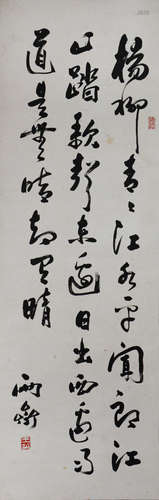 楊柳青〻江水平聞郎江
上踏歌聲東邊日出西邊雨
道是無晴却有晴